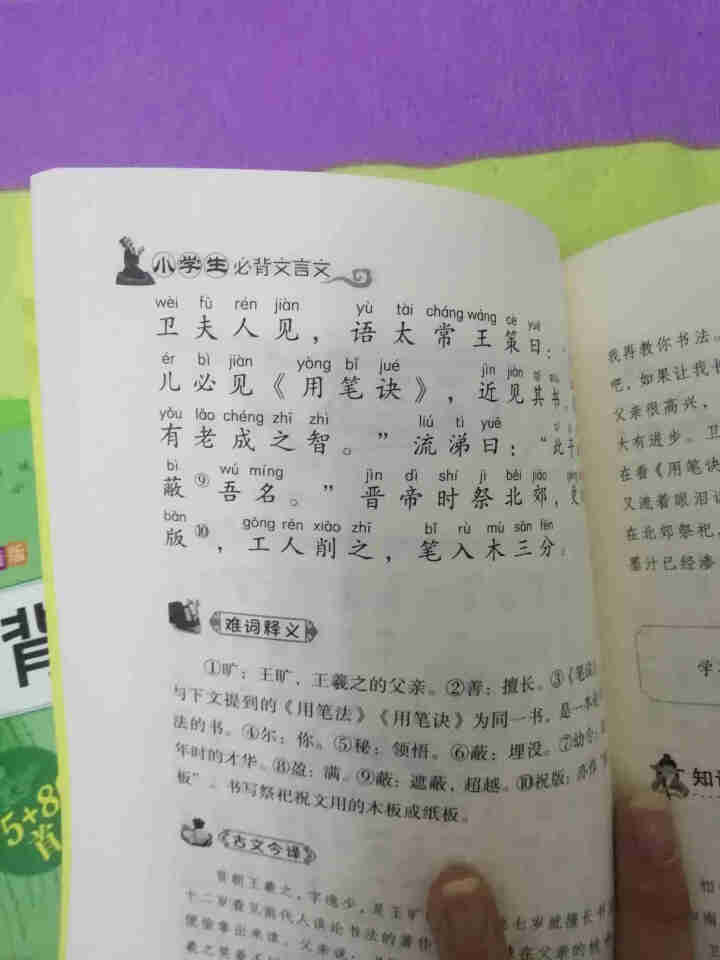 小学生必背文言文
wèi fū rén jiàn yù tài cháng wáng cè yuē
卫夫人见，语太常王策曰：“
ér bì jiàn yòng bǐ jué jìn jiàn
儿必见《用笔诀》，近见其书，
yǒu lǎo chéng zhī zhì liú tì yuē
有老成之智。”流涕曰：“此子
bì wú míng jìn dì shí jì běi jiāo
蔽⑨吾名。”晋帝时祭北郊，更
bǎn gōng rén xiāo zhī bǐ rù mù sān fēn
版⑩，工人削之，笔入木三分。
难词释义
①旷：王旷，王羲之的父亲。②善：擅长。③《笔说》：
与下文提到的《用笔法》《用笔诀》为同一书，是一本
法的书。④尔：你。⑤秘：领悟。⑥蔽：埋没。⑦幼令：
年时的才华。⑧盈：满。⑨蔽：遮蔽，超越。⑩祝版：亦作“
板”。书写祭祀祝文用的木板或纸板。
《古文今译》
晋朝王羲之，字逸少，是王旷 七岁就擅长书
十二岁看见前代人谈论书法的著作
便偷拿出来读。父亲说： 在父亲的枕
羲之笑着不
我再教你书法。
吧，如果让我长
父亲很高兴，
大有进步。卫
在看《用笔诀
又流着眼泪说
在北郊祭祀，
墨汁已经渗
学
知识
版
背
5+8